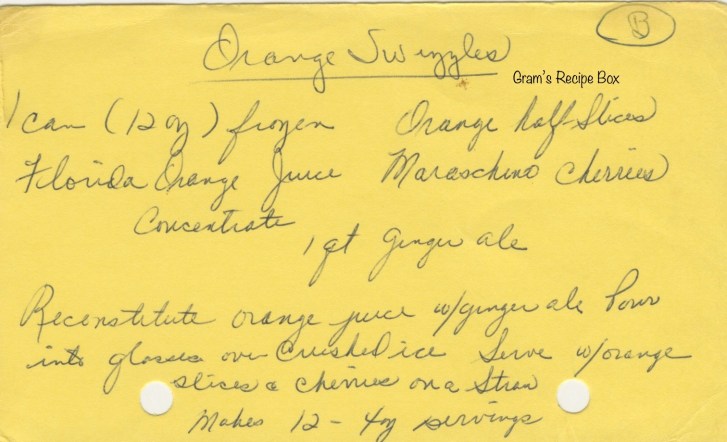 B
Orange Swizzles
Gram's Recipe Box
1 can (12 oz) frozen
Florida Orange Juice
Concentrate
Orange half Slices
Maraschino Cherries
1 qt ginger ale
Reconstitute orange juice w/ginger ale Pour
into glasses over Crushed ice Serve w/orange
slices & cherries on a Straw
Makes 12 - 4oz servings